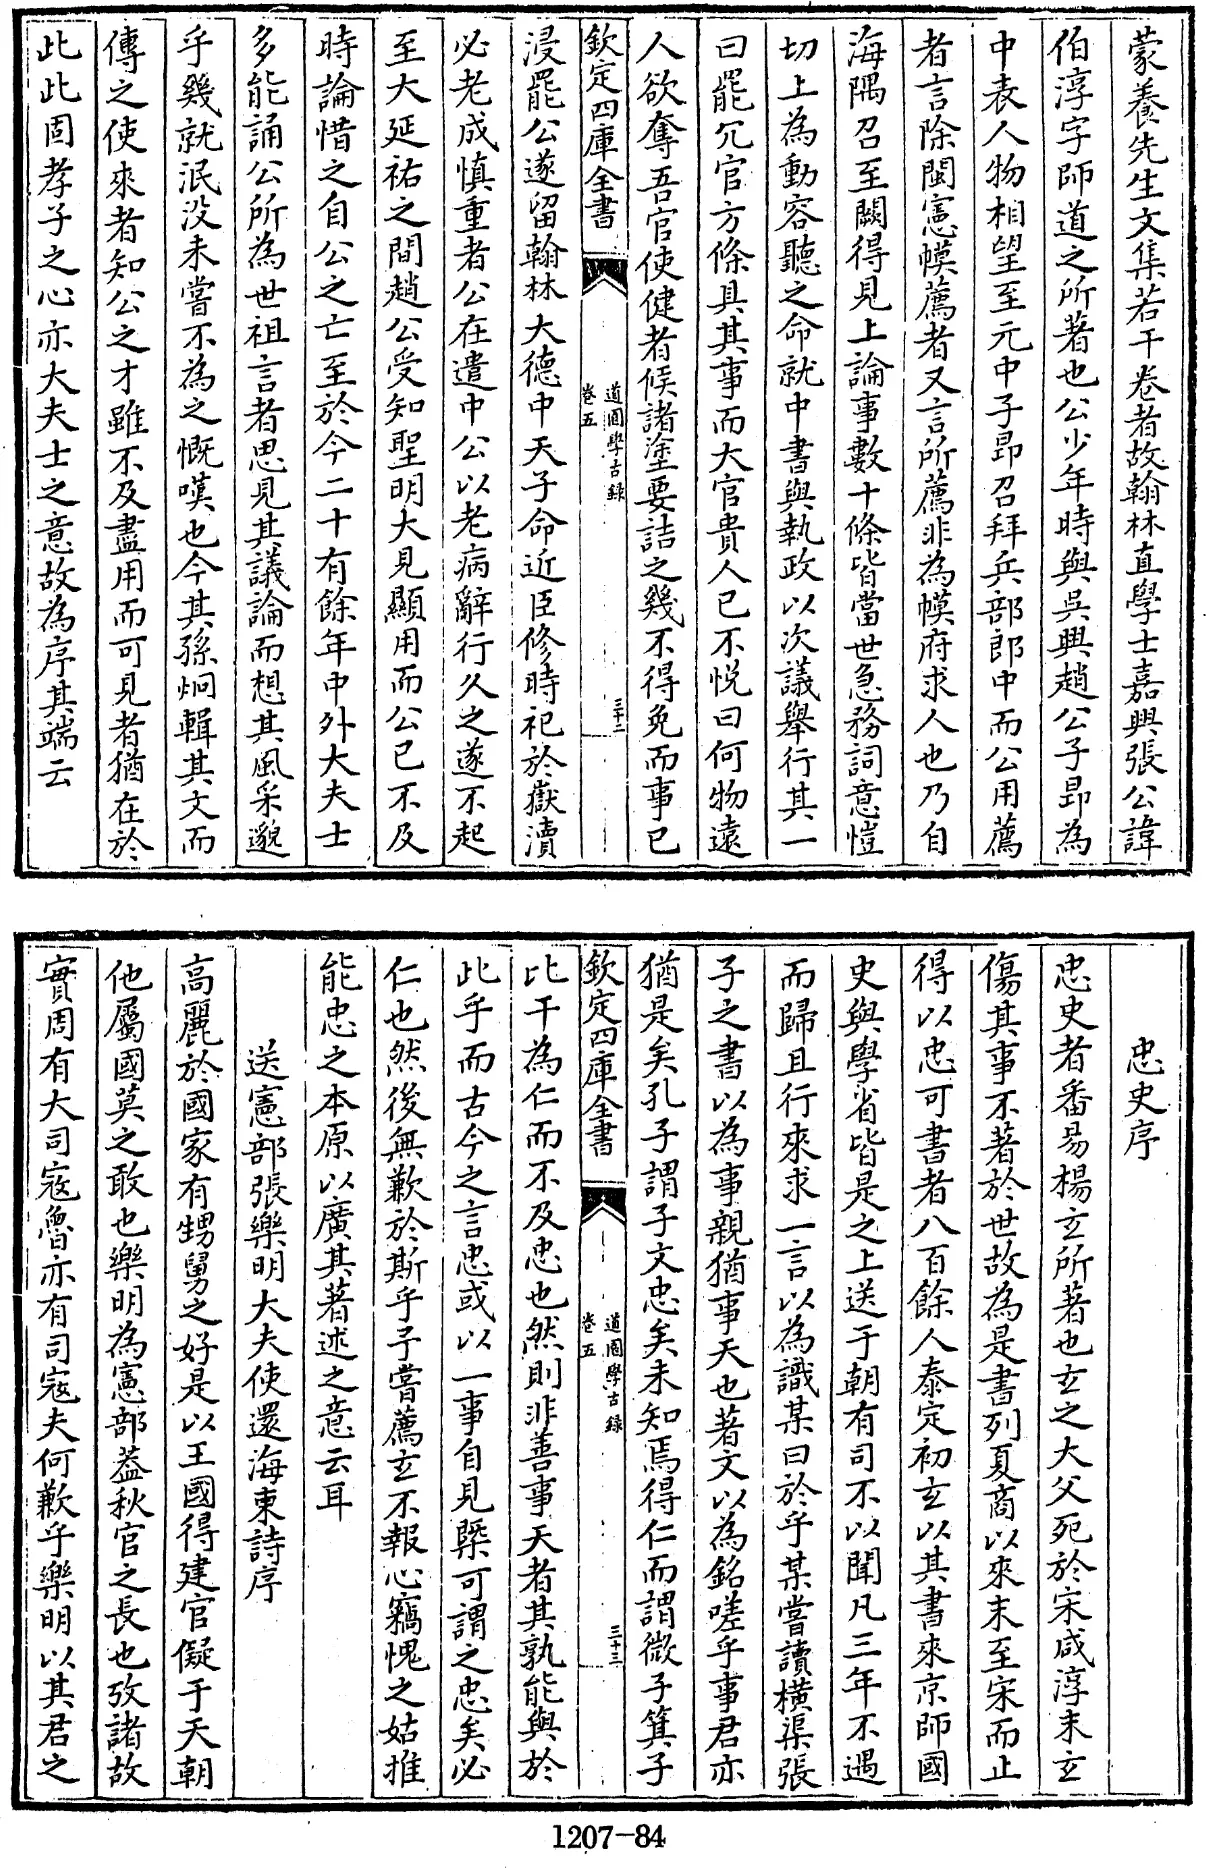 蒙養先生文集若干卷者故翰林直學士嘉興張公諱
伯淳字師道之所著也公少年時與吳興趙公子昻為
中表人物相望至元中子昻召拜兵部郎中而公用薦
者言除閩憲幙薦者又言所薦非為幙府求人也乃自
海隅召至闕得見上論事數十條皆當世急務詞意愷
切上為動容聽之命就中書與執政以次議舉行其一
曰罷冗官方條具其事而大官貴人已不悅曰何物遠
人欲奪吾官使健者候諸塗要詰之幾不得免而事已
欽定四庫全書
道園學古錄
卷五
三十二
浸罷公遂留翰林大德中天子命近臣修時祀於嶽瀆
必老成慎重者公在遣中公以老病辭行久之遂不起
至大延祐之間趙公受知聖明大見顯用而公已不及
時論惜之自公之亡至於今二十有餘年中外大夫士
多能誦公所為世祖言者思見其議論而想其風采邈
乎幾就泯没未嘗不為之慨嘆也今其孫炯輯其文而
傳之使來者知公之才雖不及盡用而可見者猶在於
此此固孝子之心亦大夫士之意故為序其端云
忠史序
忠史者番易楊玄所著也玄之大父死於宋咸淳末玄
傷其事不著於世故為是書列夏商以來末至宋而止
得以忠可書者八百餘人泰定初玄以其書來京師國
史與學省皆是之上送于朝有司不以聞凡三年不遇
而歸且行來求一言以為識某曰於乎某嘗讀橫渠張
子之書以為事親猶事天也著文以為銘嗟乎事君亦
猶是矣孔子謂子文忠矣未知焉得仁而謂微子箕子
欽定四庫全書
道園學古錄
卷五
三十三
比干為仁而不及忠也然則非善事天者其孰能與於
此乎而古今之言忠或以一事自見槩可謂之忠矣必
仁也然後無歉於斯乎予嘗薦玄不報心竊愧之姑推
能忠之本原以廣其著述之意云耳
送憲部張樂明大夫使還海東詩序
高麗於國家有甥舅之好是以王國得建官儗于天朝
他屬國莫之敢也樂明為憲部葢秋官之長也攷諸故
實周有大司寇魯亦有司寇夫何歉乎樂明以其君之
1207-84